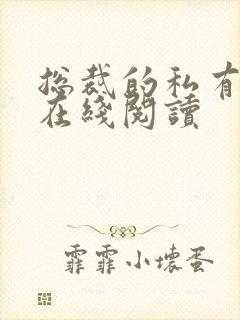 总裁的私有
在綫閱讀
霏霏小壞蛋